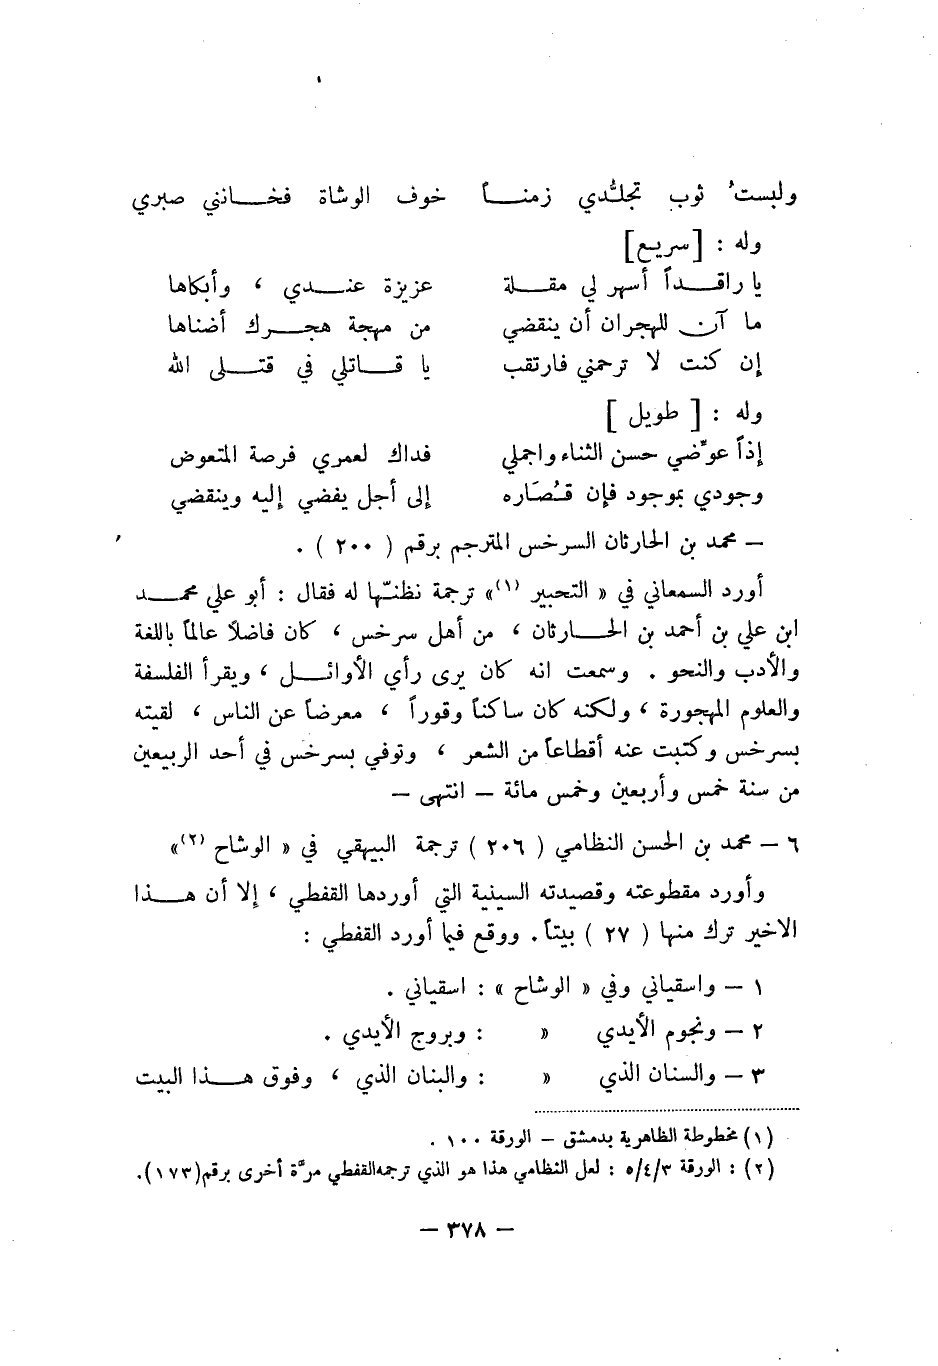 ولبستُ ثوب تجلُّدي زمنــــاً خوف الوشاة فخـــانني صبري
وله : [سريع]
يا راقــــداً أسهر لي مقــلة عزيزة عنــــدي ، وأبكاها
ما آن للهجران أن ينقضي من مهجة هجـــرك أضناها
إن كنت لا ترحمني فارتقب يا قــــاتلي في قتـــلى الله
وله : [ طويل ]
إذاً عوِّضي حسن الثناء واجملي فداك لعمري فرصة المتعوض
وجودي بموجود فإن قُصَاره إلى أجل يفضي إليه وينقضي
– محمد بن الحارثان السرخس المترجم برقم ( ٢٠٠ ) .
أورد السمعاني في « التحبير (١)» ترجمة نظنّها له فقال : أبو علي محمـــد
ابن علي بن أحمد بن الحـــارثان ، من أهل سرخس ، كان فاضلاً عالماً باللغة
والأدب والنحو . وسمعت انه كان يرى رأي الأوائــل ، ويقرأ الفلسفة
والعلوم المهجورة ، ولكنه كان ساكناً وقوراً ، معرضاً عن الناس ، لقيته
بسرخس وكتبت عنه أقطاعاً من الشعر ، وتوفي بسرخس في أحد الربيعين
من سنة خمس وأربعين وخمس مائة – انتهى –
٦ – محمد بن الحسن النظامي ( ٢٠٦ ) ترجمة البيهقي في « الوشاح (٢)»
وأورد مقطوعته وقصيدته السينية التي أوردها القفطي ، إلا أن هـــذا
الاخير ترك منها ( ٢٧ ) بيتاً . ووقع فيما أورد القفطي :
١ – واسقياني وفي « الوشاح » : اسقياني .
٢ – ونجوم الأيدي « : وبروج الأيدي .
٣ – والسنان الذي « : والبنان الذي ، وفوق هـــذا البيت
(١) مخطوطة الظاهرية بدمشق – الورقة ١٠٠ .
(٢) : الورقة ٥/٤/٣ : لعل النظامي هذا هو الذي ترجمه القفطي مرَّة أخرى برقم (١٧٣).
– ٣٧٨ –